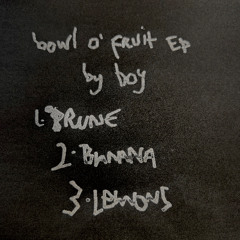 bowl o' fruit EP
by boy
1. PRUNE
2. BANANA
3. LEMONS